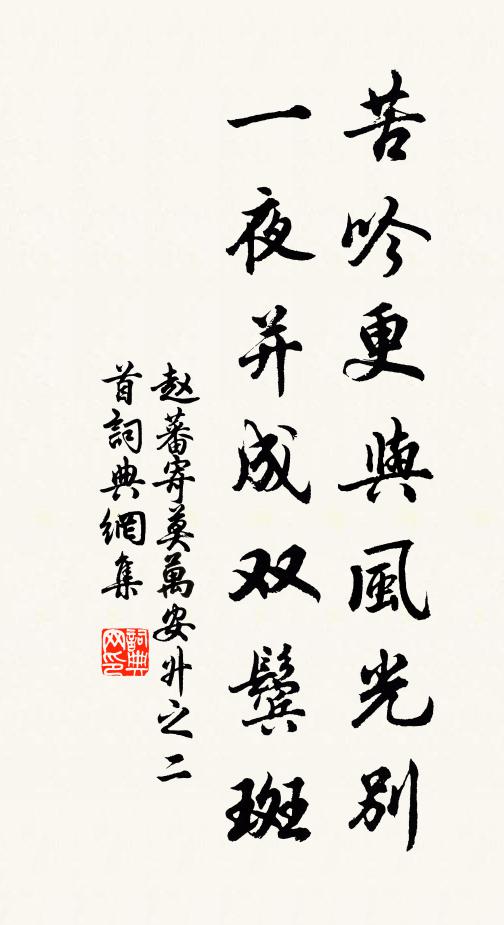 苦吟更與風光別
一夜并成双鬓斑
赵蕃寄莫萬安廾之二
首詞典網集
詞典网印